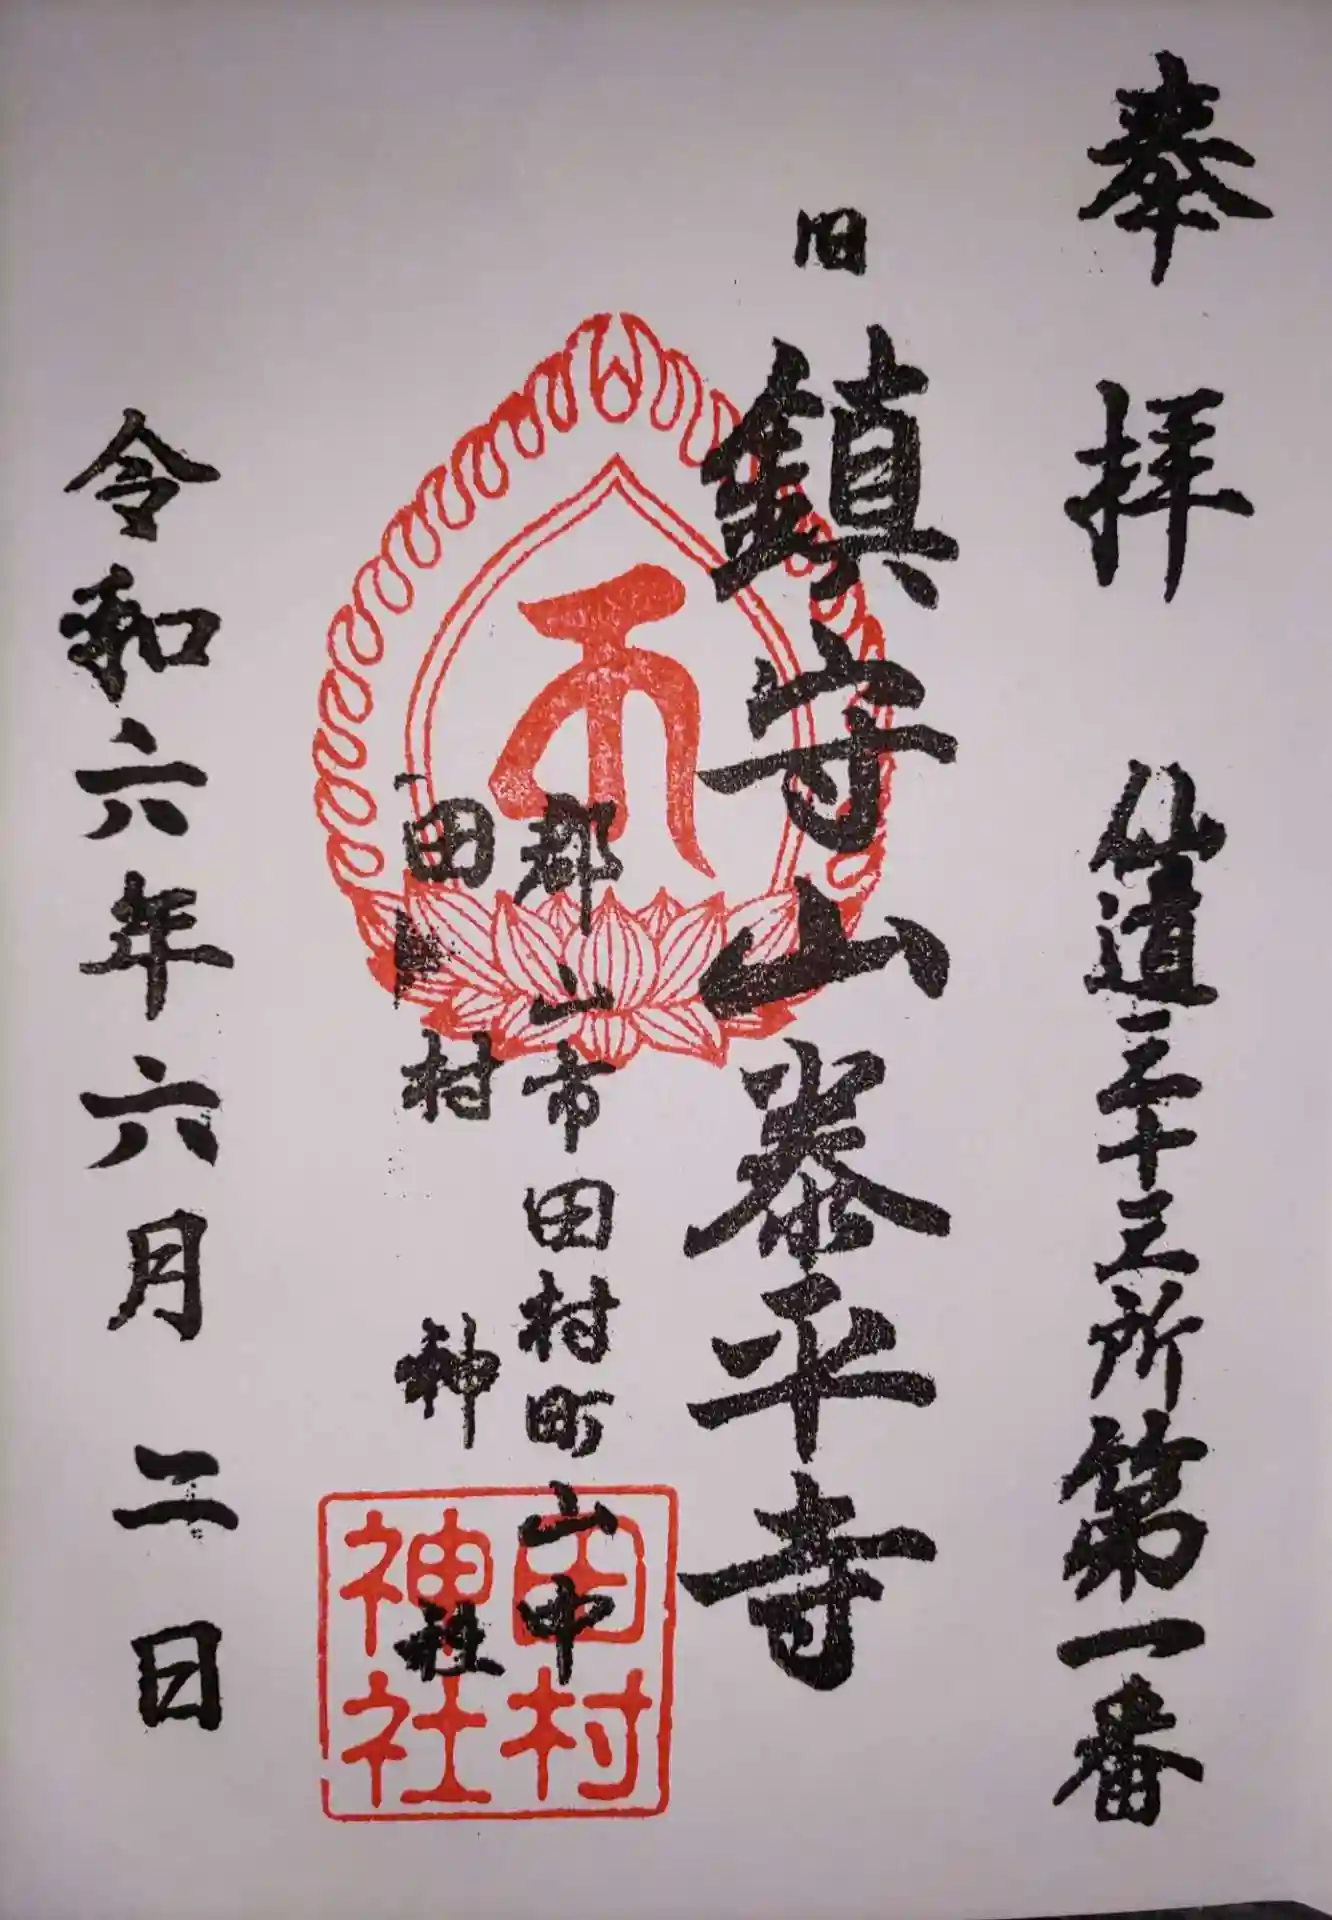 奉拝 仙道三十三所第一番
旧 鎮守山泰平寺
郡山市田村町山中
田村神社
田村
神社
令和六年六月二日